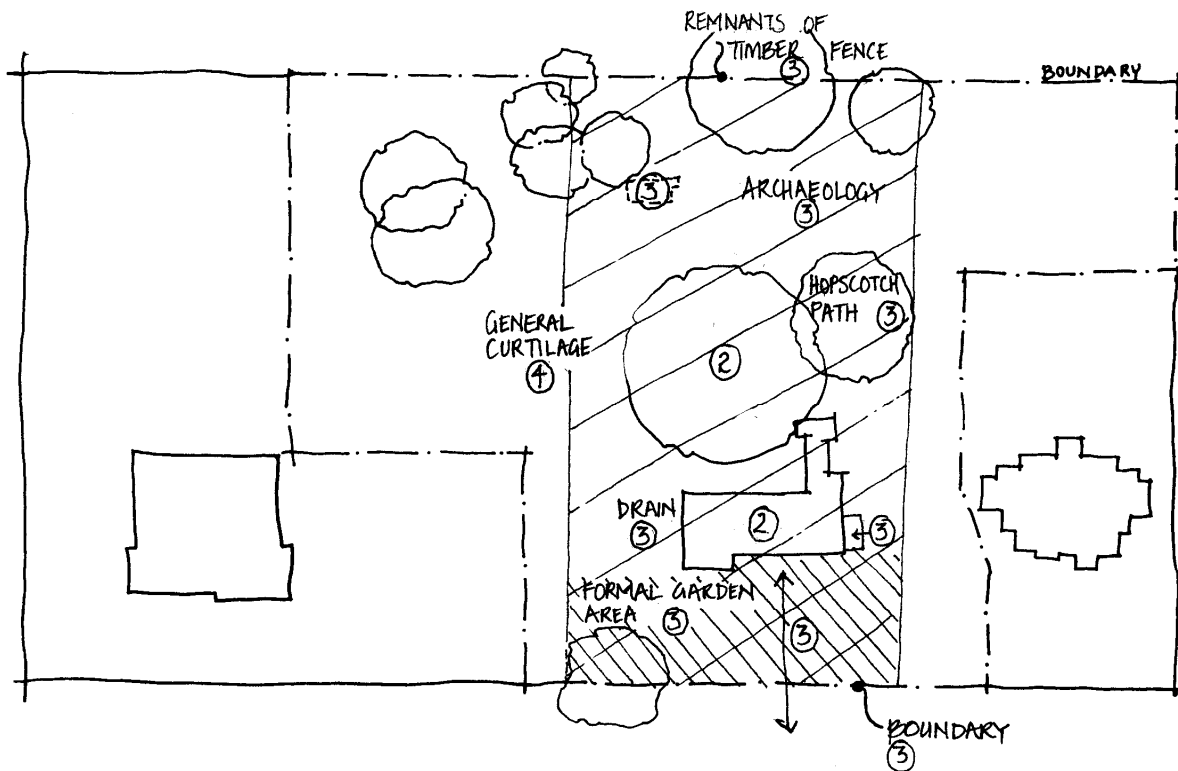 REMNANTS OF
TIMBER FENCE
③
BOUNDARY
③
ARCHAEOLOGY
③
HOPSCOTCH
PATH ③
GENERAL
CURTILAGE
④
②
DRAIN
③
②
③
FORMAL GARDEN
AREA ③
③
BOUNDARY
③